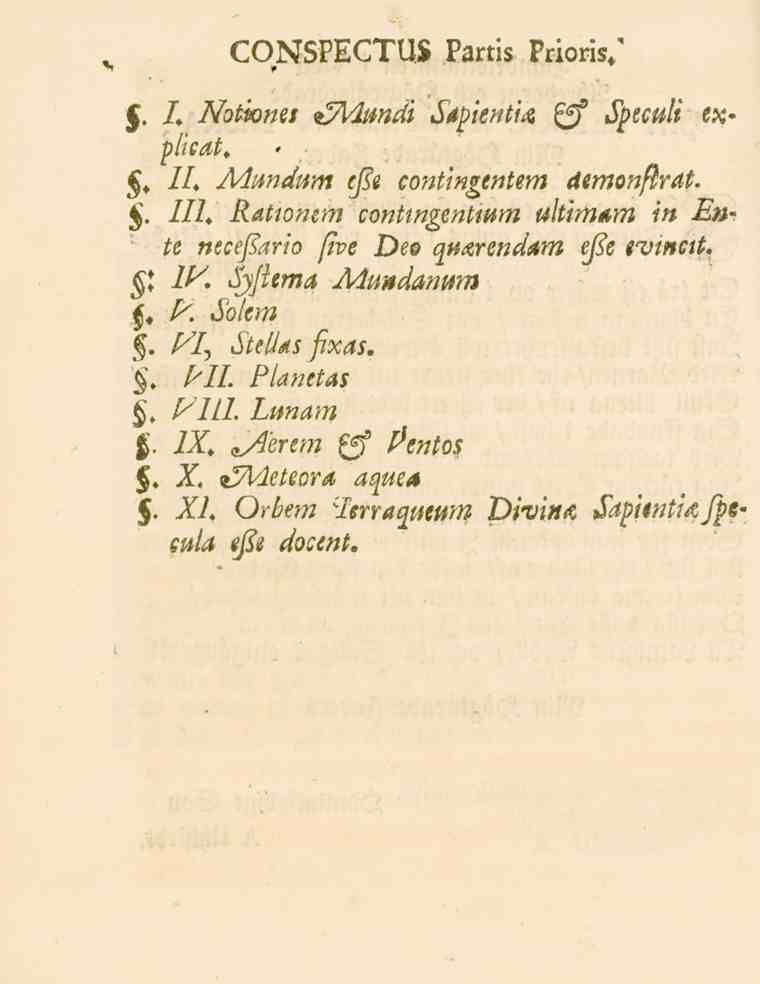 CONSPECTUS Partis Prioris.
§. I. Notiones Mundi Sapientiæ & Speculi ex-
plicat.
§. II. Mundum eſſe contingentem demonſtrat.
§. III. Rationem contingentium ultimam in En-
te neceſſario ſive Deo quærendam eſſe evincit.
§: IV. Syſtema Mundanum
§. V. Solem
§. VI, Stellas fixas.
§. VII. Planetas
§. VIII. Lunam
§. IX. Aërem & Ventos
§. X. Meteora aquea
§. XI. Orbem Terraqueum Divinæ Sapientiæ ſpe-
cula eſſe docent.